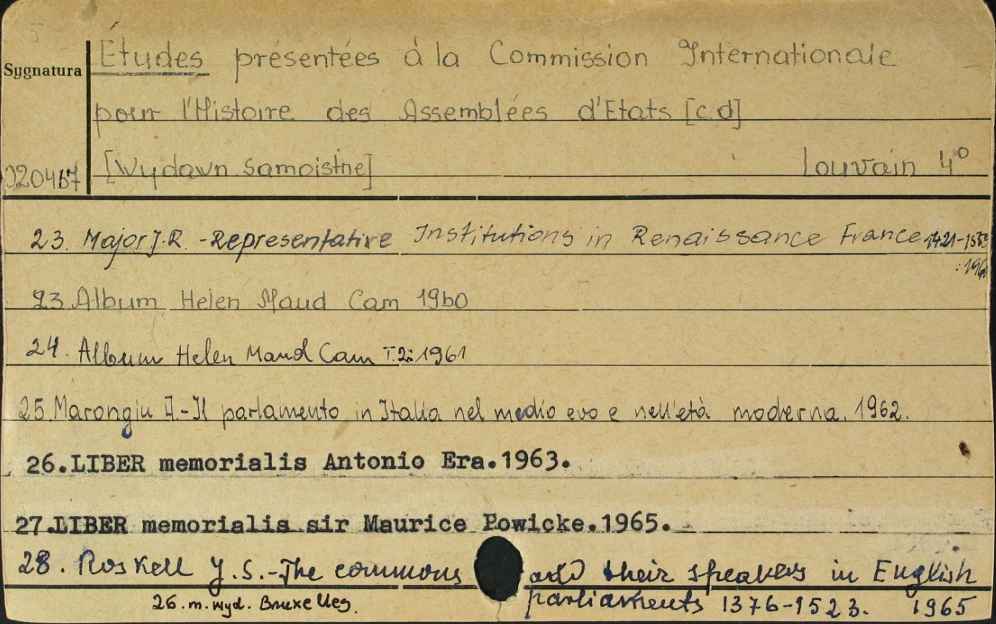 Sygnatura
Études présentées à la Commission Internationale
pour l'Histoire des Assemblées d'Etats [c d]
[Wydawn samoistne] Louvain 4°
23. Major J.R. - Representative Institutions in Renaissance France 1421-
23 Album Helen Maud Cam 1960
24. Album Helen Maud Cam T.2: 1961
25 Marongiu A. - Il parlamento in Italia nel medio evo e nell'età moderna. 1962.
26. LIBER memorialis Antonio Era. 1963.
27. LIBER memorialis sir Maurice Powicke. 1965.
28. Roskell J.S. - The commons and their speakers in English
parliaments 1376-1523. 1965
26. m. wyd. Bruxelles.